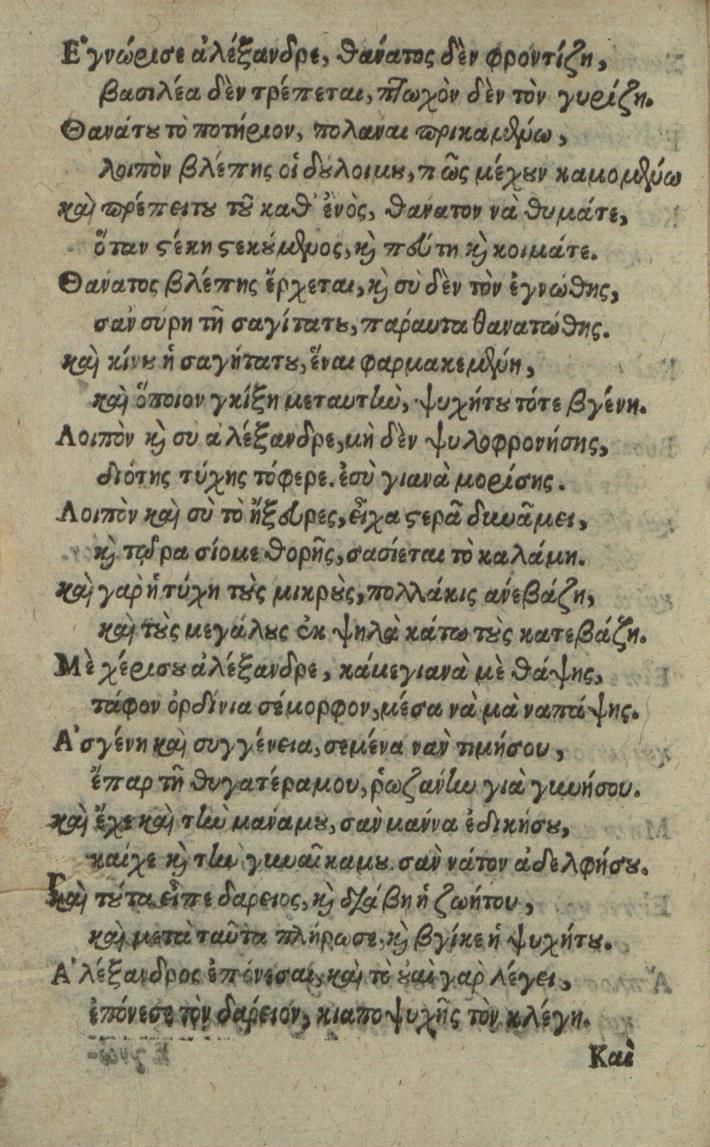 Ε᾿γνώρισε ἀλέξανδρε, θανάτος δὲν φροντίζη,
βασιλέα δὲν τρέπεται, πτωχὸν δὲν τὸν γυρίζη.
Θανάτου τὸ ποτήριον, πολαναι πρικαμένω,
λοιπὸν βλέπης οἱ δουλοιμου, πῶς μέχουν καμομένω
καὶ πρέπειτου τοῦ καθ᾿ ἑνὸς, θανατον νὰ θυμάτε,
ὅταν στέκη στεκούμενος, καὶ πούτη καὶ κοιμάτε.
Θανατος βλέπης ἔρχεται, καὶ σὺ δὲν τὸν ἐγνώθης,
σαν συρη τῆ σαγίτατου, πάραυτα θανατώθης.
καὶ κίνου ἡ σαγήτατου, ἔναι φαρμακεμένη,
καὶ ὅποιον γκίξη μεταυτὴν, ψυχήτου τότε βγένη.
Λοιπὸν καὶ συ ἀλέξανδρε, μὴ δὲν ψυλοφρονήσης,
διότης τύχης τόφερε. ἐσὺ γιανὰ μορίσης.
Λοιπὸν καὶ σὺ τὸ ἤξουρες, εἶχα στερᾶ δυνάμει,
καὶ τώρα σίομε θορῆς, σασίεται τὸ καλάμη.
καὶ γαρ ἡ τύχη τοὺς μικροὺς, πολλάκις ἀνεβάζη,
καὶ τοὺς μεγάλους ἐκ ψηλὰ κάτω τοὺς κατεβάζη.
Μὲ χέρισου ἀλέξανδρε, κάμεγιανὰ μὲ θάψης,
τάφον ὀρδίνια σέμορφον, μέσα νὰ μὰ ναπάψης.
Α᾿σγένη καὶ συγγένεια, σεμένα ναν τιμήσου,
ἔπαρ τὴ θυγατέραμου, ῥωζανὴν γιὰ γυνήσου.
καὶ ἔχε καὶ τὴν μάναμου, σαν μαννα ἐδικήσου,
καίχε καὶ τὴν γυναῖκαμου σαν νάτον ἀδελφήσου.
καὶ τοῦτα εἶπε δαρειος, καὶ διάβη ἡ ζωήτου,
καὶ μετὰ ταῦτα πλήρωσε, καὶ βγίκε ἡ ψυχήτου.
Α᾿λέξανδρος ἐπόνεσαι, καὶ τὸ οὐαὶ γαρ λέγει,
ἐπόνεσε τὸν δαρειον, κιαπο ψυχῆς τὸν κλέγη.
Καὶ